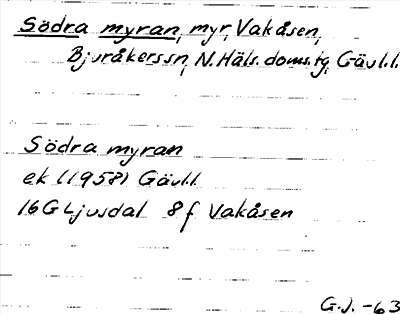 Södra myran, myr, Vakåsen,
Bjuråkerssn, N. Häls. doms.tg, Gävl.l.
Södra myran
ek (1958) Gävl.l.
16G Ljusdal 8 f Vakåsen
G.J. -63